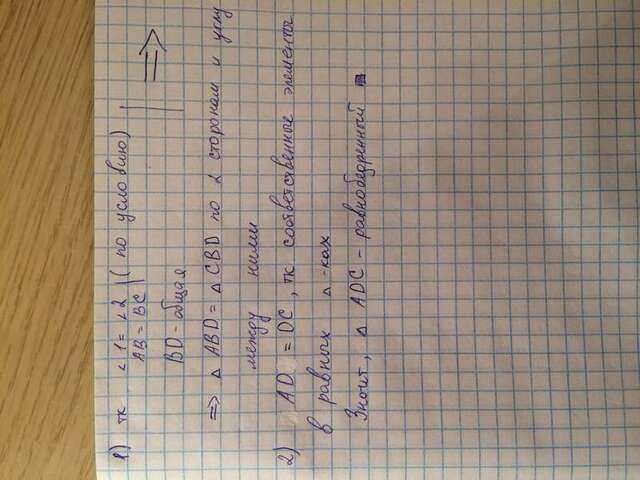 1) тк ∠1 = ∠2 | (по условию) | ⇒
AB = BC |
BD - общая
⇒ △ ABD = △ CBD по 2 сторонам и углу
между ними
2) AD = DC, тк соответственные элементы
в равных △-ках
Значит, △ ADC - равнобедренный